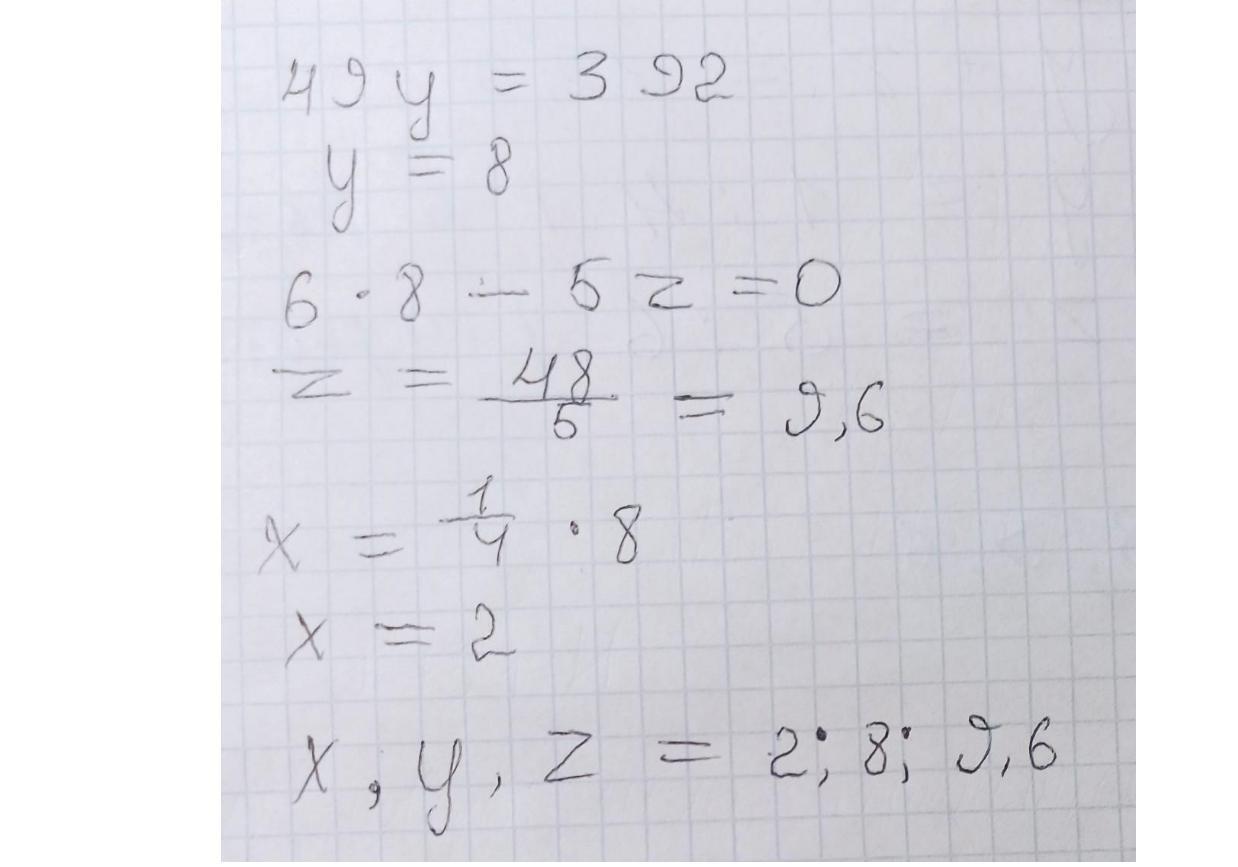 49y = 392
y = 8
6 · 8 — 5z = 0
z = 48/5 = 9,6
x = 1/4 · 8
x = 2
x, y, z = 2; 8; 9,6